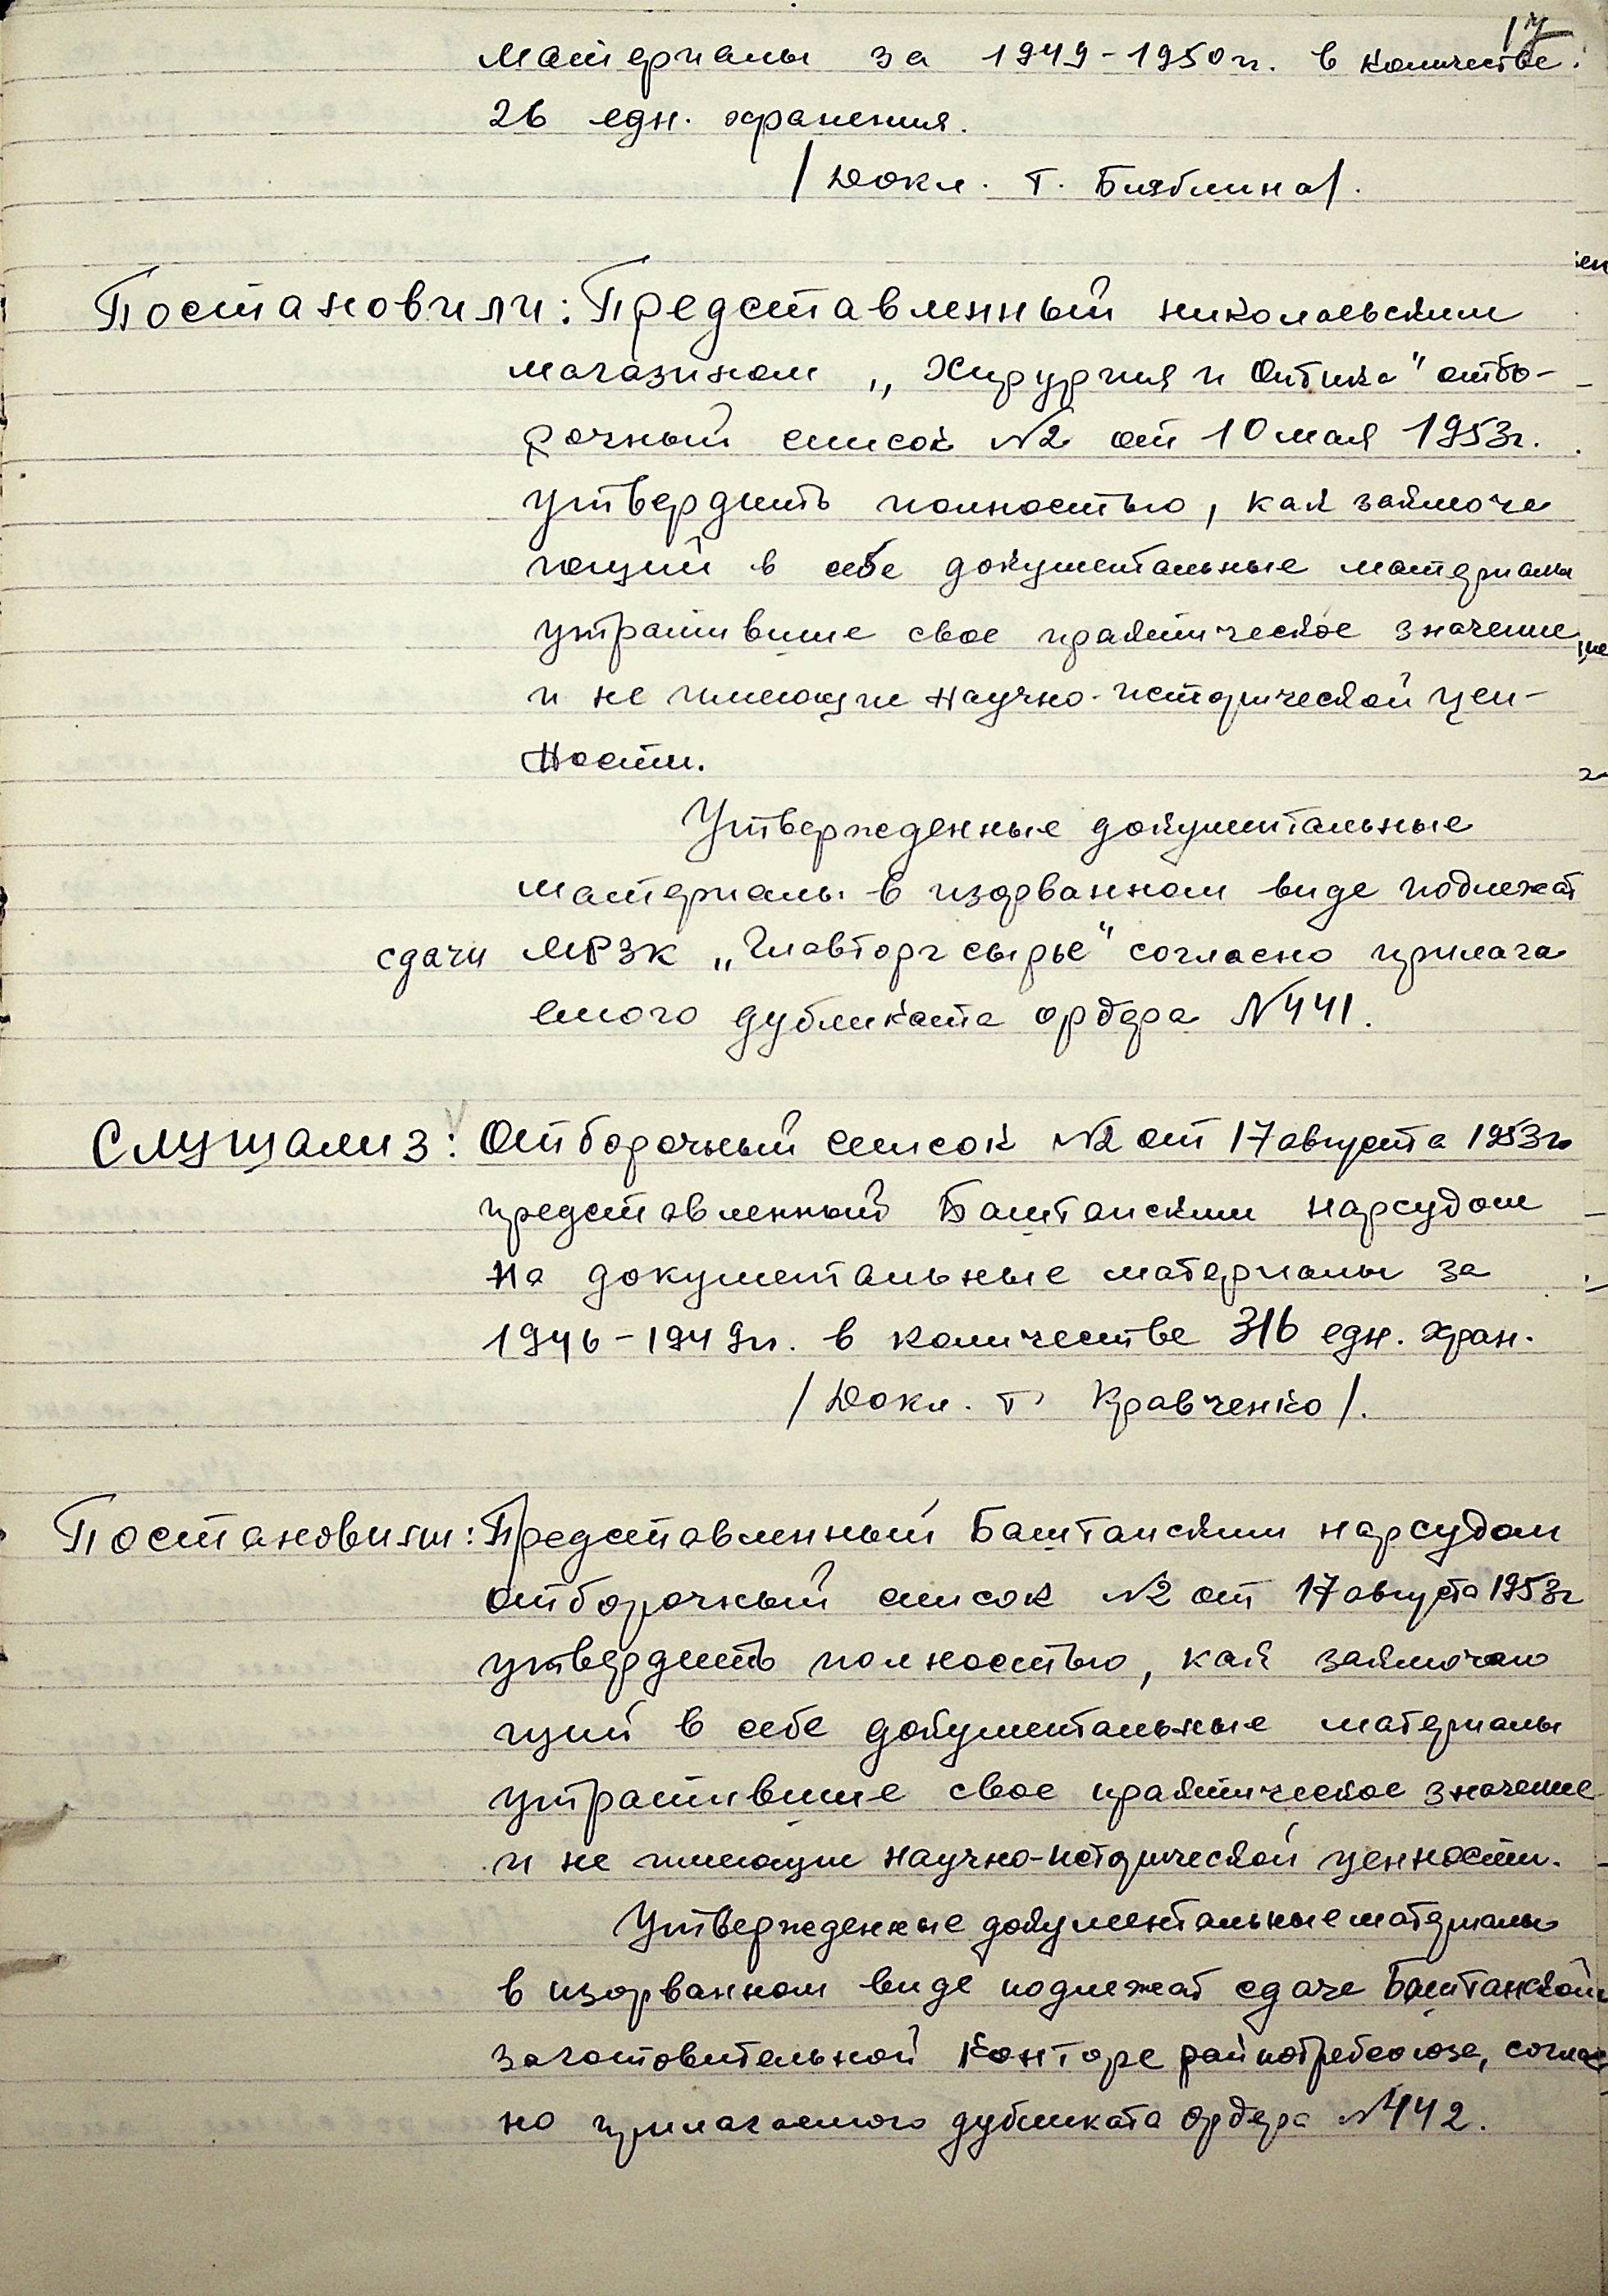 17
материалы за 1949-1950 гг. в количестве
26 едн. хранения.
/Докл. т. Бияблина/.
Постановили: Представленный николаевским
магазином „Хирургия и Оптика" отбо-
рочный список №2 от 10 мая 1953г.
утвердить полностью, как заключа
ющий в себе документальные материалы
утратившие свое практическое значение
и не имеющие научно-исторической цен-
ности.
Утвержденные документальные
материалы в изорванном виде подлежат
сдачи МРЗК „Главторгсырье" согласно прилага
емого дубликата ордера №441.
Слушали 3: Отборочный список №2 от 17 августа 1953г
представленный Баштанским нарсудом
на документальные материалы за
1946-1949гг. в количестве 316 едн. хран.
/Докл. т. Кравченко/.
Постановили: Представленный Баштанским нарсудом
отборочный список №2 от 17 августа 1953г
утвердить полностью, как заключаю
щий в себе документальные материалы
утратившие свое практическое значение
и не имеющие научно-исторической ценности.
Утвержденные документальные материалы
в изорванном виде подлежат сдаче Баштанской
заготовительной конторе райпотребсоюза, соглас
но прилагаемого дубликата ордера №442.